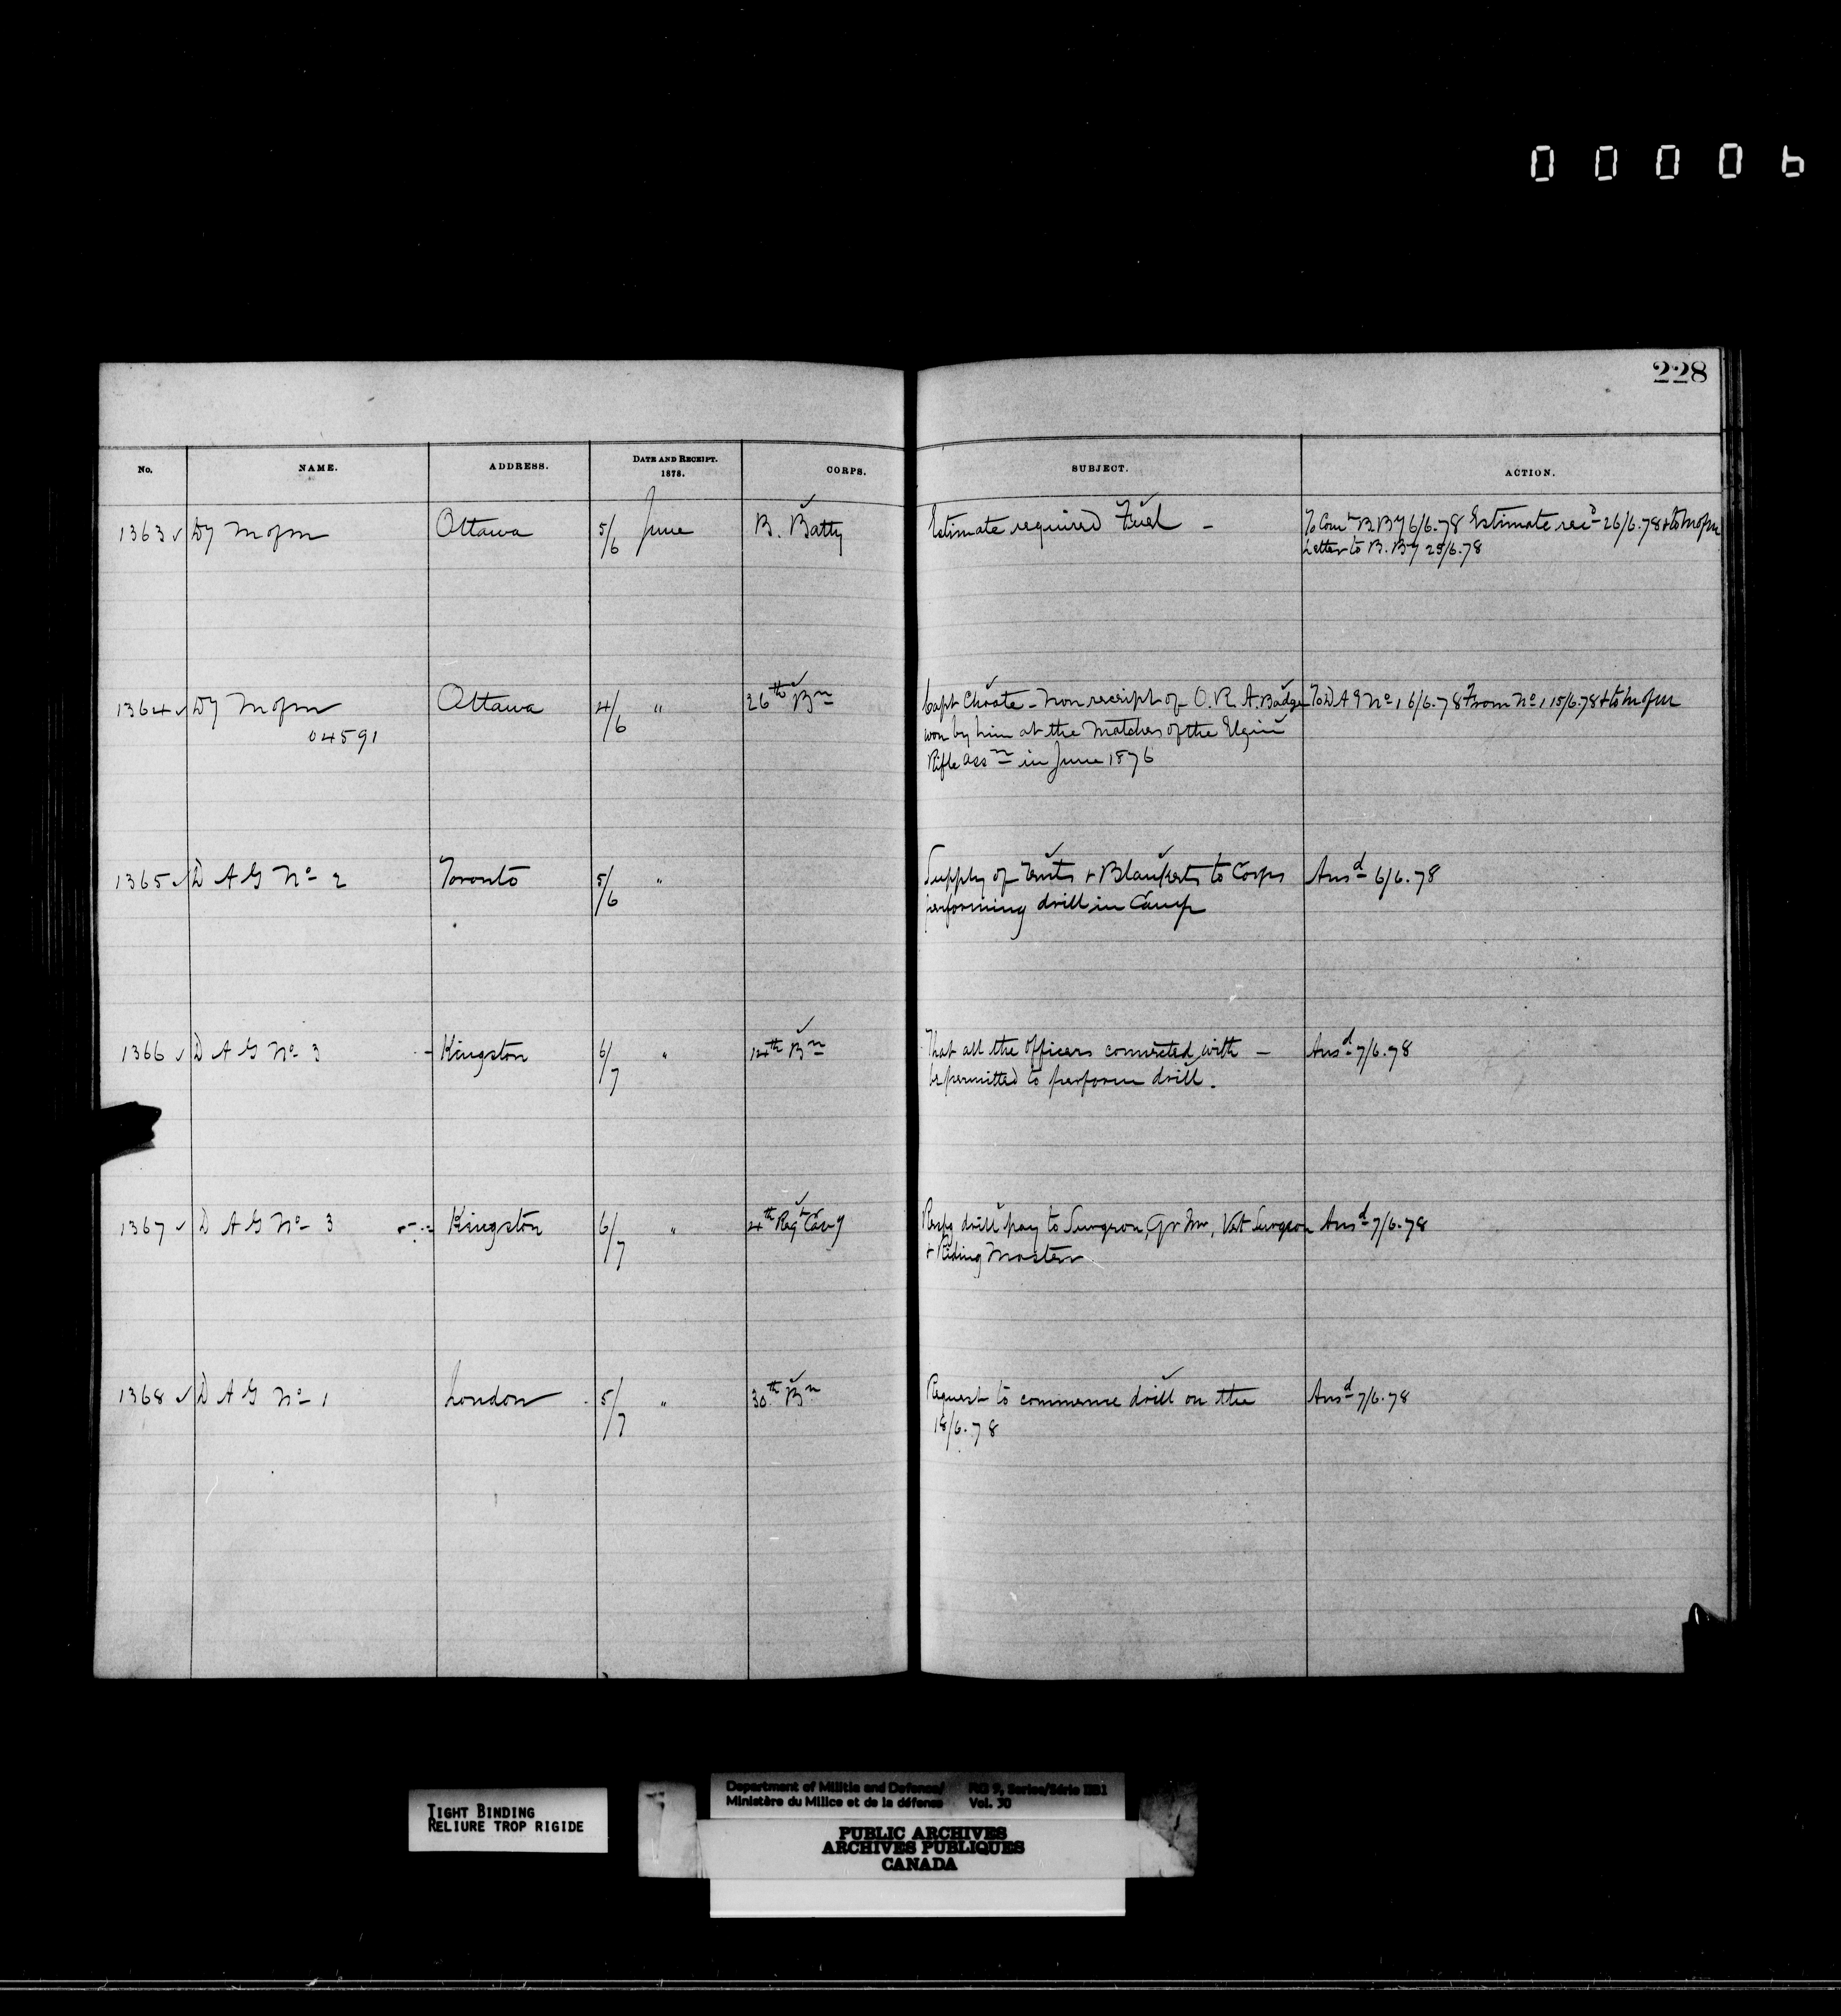 00006
228
No. NAME. ADDRESS. DATE AND RECEIPT. 1878. CORPS. SUBJECT. ACTION.
1363 ✓ Dy M of M Ottawa 5/6 June B. Batty Estimate required Fuel – To Comt B By 6/6.78 Estimate recd 26/6.78 + to M of M
Letter to B. By 25/6.78
1364 ✓ Dy M of M Ottawa 4/6 " 26th Bn Capt Choate – Non receipt of O. R. A. Badge To D A G No 1 6/6.78 From No 1 15/6.78 + to M of M
04591 won by him at the Matches of the Elgin
Rifle Assn in June 1876
1365 ✓ D A G No 2 Toronto 5/6 " Supply of Tents + Blankets to Corps Ansd 6/6.78
performing drill in Camp
1366 ✓ D A G No 3 Kingston 6/7 " 14th Bn That all the Officers connected with – Ansd 7/6.78
be permitted to perform drill.
1367 ✓ D A G No 3 Kingston 6/7 " 4th Regt Cavy drill pay to Surgeon, Qr Mr, Vet Surgeon Ansd 7/6.78
+ Riding Master
1368 ✓ D A G No 1 London 5/7 " 30th Bn Request to commence drill on the Ansd 7/6.78
18/6.78
TIGHT BINDING
RELIURE TROP RIGIDE
Department of Militia and Defence/ RG 9, Series/Série IIB1
Ministère du Milice et de la défense Vol. 30
PUBLIC ARCHIVES
ARCHIVES PUBLIQUES
CANADA